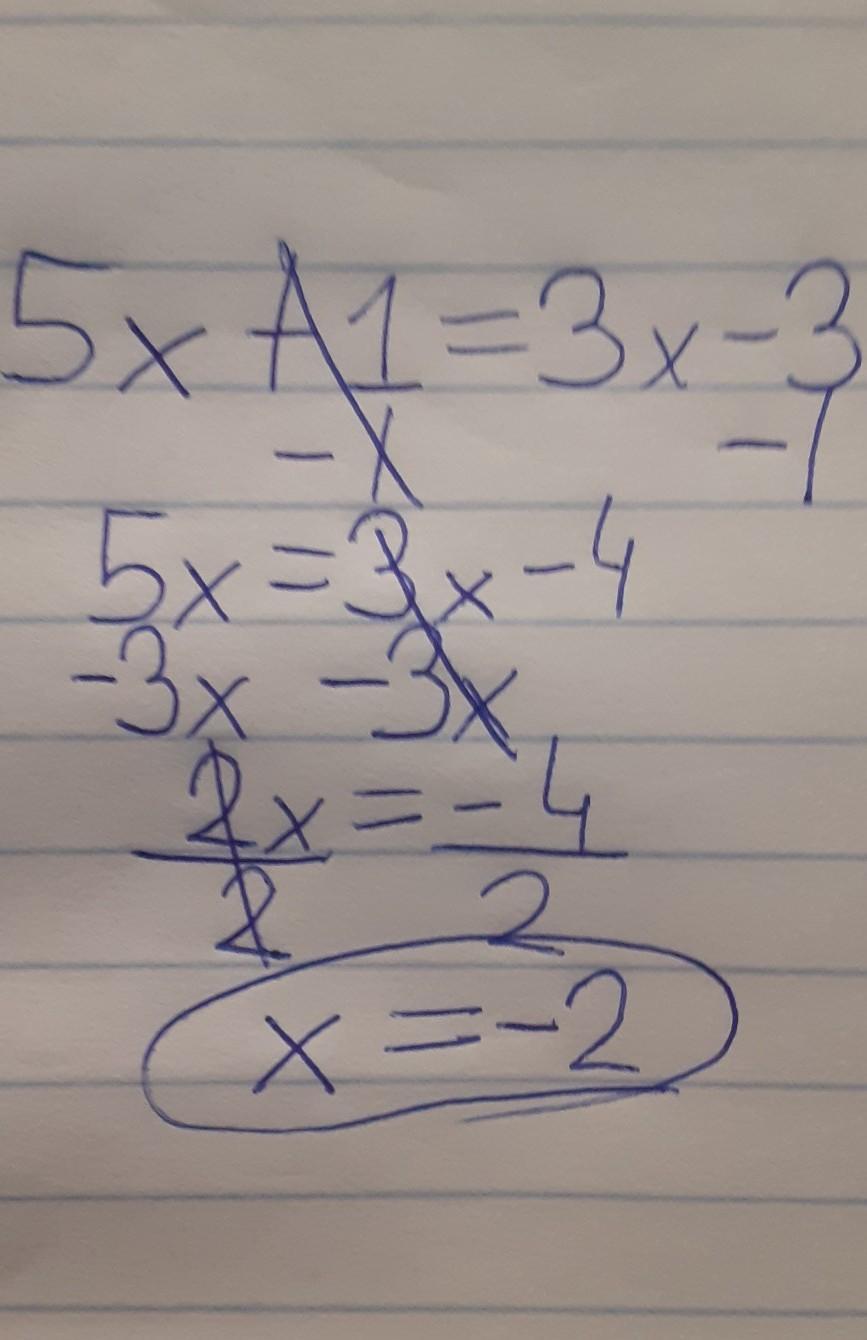 5x + 1 = 3x - 3
- 1 - 1
5x = 3x - 4
-3x -3x
2x = - 4
2 2
x = -2